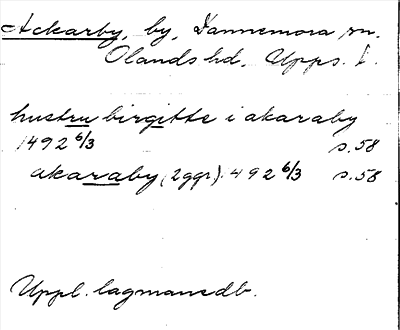 Ackarby, by, Dannemora sn.
Olands hd, Upps. l.
hustru birgitte i akaraby
1492 6/3 s.58
akaraby (2ggr). 492 6/3 s.58
Uppl. lagmansdb.